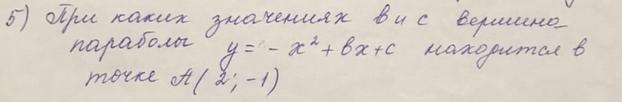 5) При каких значениях в и с вершина
параболы y = - x² + вx + c находится в
точке А( 2; -1)